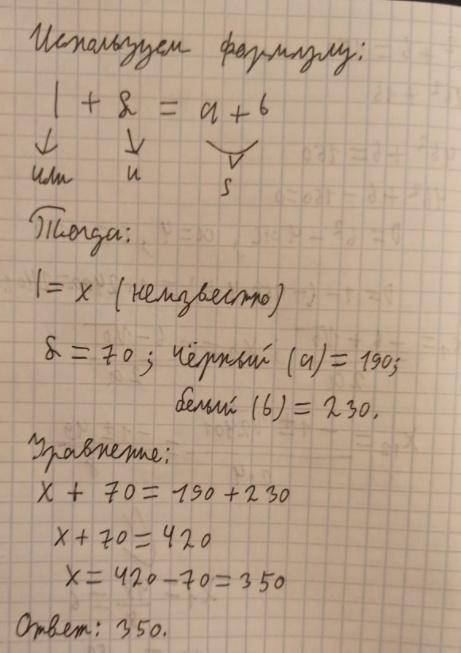 Используем формулу:
| + & = a + b
или и s
Тогда:
| = x (неизвестно)
& = 70; чёрный (a) = 190;
белый (b) = 230.
Уравнение:
x + 70 = 190 + 230
x + 70 = 420
x = 420 - 70 = 350
Ответ: 350.